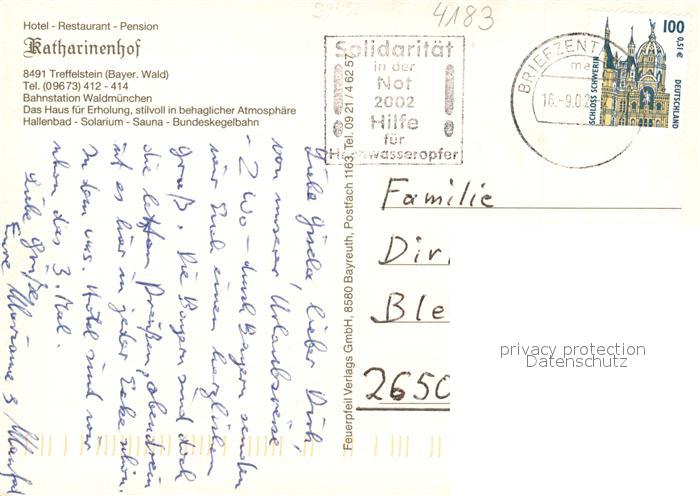 Hotel - Restaurant - Pension
Katharinenhof
8491 Treffelstein (Bayer. Wald)
Tel. (09673) 412 - 414
Bahnstation Waldmünchen
Das Haus für Erholung, stilvoll in behaglicher Atmosphäre
Hallenbad - Solarium - Sauna - Bundeskegelbahn
4183
Solidarität
in der
Not
2002
Hilfe
für
Hochwasseropfer
BRIEFZENT
16.-9.02
100
0,51€
SCHLOSS SCHWERIN
DEUTSCHLAND
Liebe Gisela, lieber Dirk,
von unserer Urlaubsreise,
- 2 Wo - durch Bayern senden
wir Euch einen herzlichen
Gruß. Die Bayern sind doch
die letzten Preußen, obendrein
ist es hier in jeder Ecke schön.
In dem ums. Hotel sind wir
schon das 3. Mal.
Liebe Grüße
Eure Marianne & Manfred
Feuerpfeil Verlags GmbH, 8580 Bayreuth, Postfach 1163, Tel. 09 21 / 4 62 57
Familie
Dir
Ble
2650
privacy protection
Datenschutz